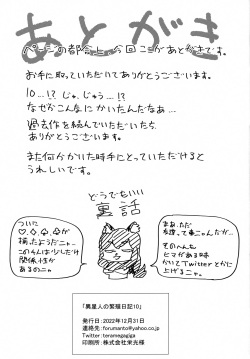 あとがき
ページの都合上、今回ここがあとがきです。
お手に取っていただいてありがとうございます。
10…!? じゅう…!?
なぜかこんなにかいたんだなぁ…
過去作を読んでいただいたら
ありがとうございます。
また何かかいた時手にとっていただけると
うれしいです。
どうでもいい
裏話
ついに
♡♢♤♧が
揃ったようだニャー
この4人は少しだけ
関係性が
あるのニャ
まぁ、ただ
って事ニャんだけど
そのへんも
ヒマがある時
かいてTwitterとかに
上げるニャー。
「異星人の繁殖日記10」
発行日：2022年12月31日
連絡先：forumanto@yahoo.co.jp
Twitter：teramegagiga
印刷所：株式会社栄光様